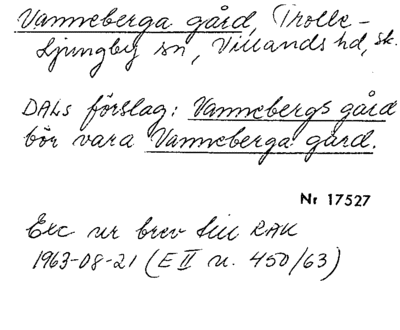 Vanneberga gård, Trolle-
Ljungby sn, Villands hd, Sk.
DALs förslag: Vannebergs gård
bör vara Vanneberga gård.
Nr 17527
Exc ur brev till RAK
1963-08-21 (E II u. 450/63)